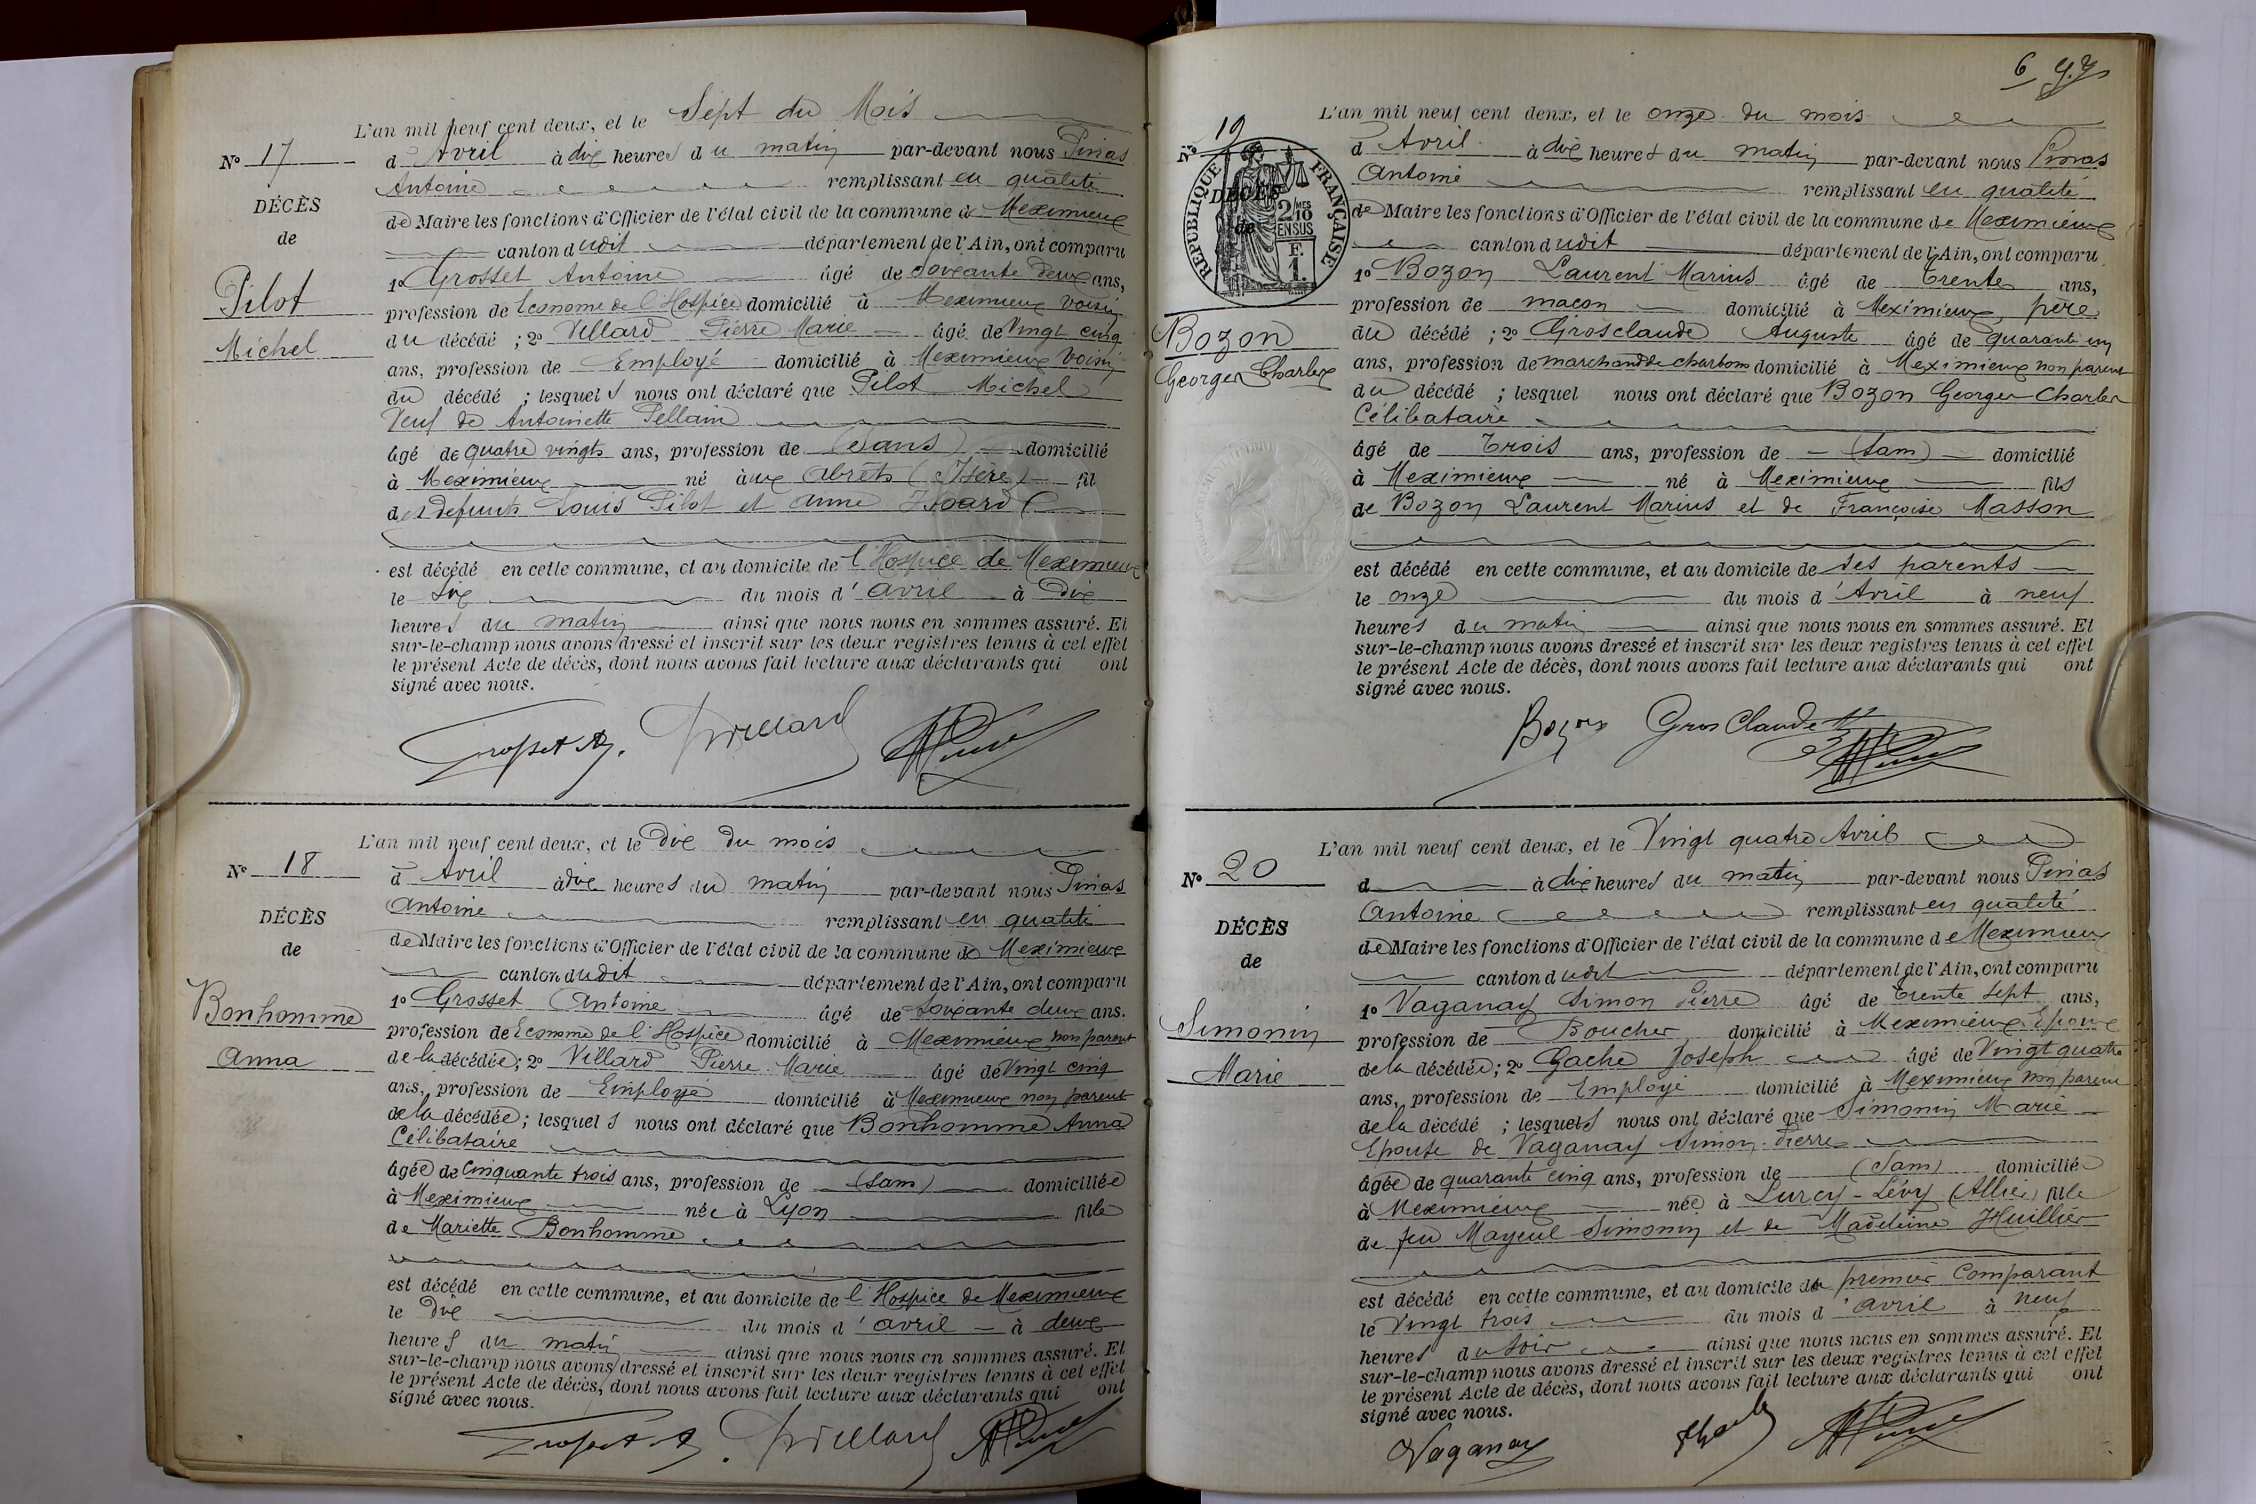 L'an mil neuf cent deux, et le Sept du Mois
N° 17
d'Avril à dix heures du matin par-devant nous Pinas
Antoine remplissant en qualité
DÉCÈS
de Maire les fonctions d'Officier de l'état civil de la commune de Meximieux
de
canton dudit département de l'Ain, ont comparu
1° Grosset Antoine âgé de Soixante deux ans,
Pilot
profession de Econome de l'Hospice domicilié à Meximieux voisin
du décédé ; 2° Villard Pierre Marie âgé de Vingt cinq
Michel
ans, profession de Employé domicilié à Meximieux voisin
du décédé ; lesquels nous ont déclaré que Pilot Michel
Veuf de Antoinette Pellain
âgé de quatre vingts ans, profession de (sans) domicilié
à Meximieux né aux Abrets (Isère) fil
des défunts Louis Pilot et Anne
est décédé en cette commune, et au domicile de l'Hospice de Meximieux
le six du mois d'avril à Dix
heures du matin ainsi que nous nous en sommes assuré. Et
sur-le-champ nous avons dressé et inscrit sur les deux registres tenus à cet effet
le présent Acte de décès, dont nous avons fait lecture aux déclarants qui ont
signé avec nous.
Grosset A. Villard
L'an mil neuf cent deux, et le Dix du mois
N° 18
d'Avril à dix heures du matin par-devant nous Pinas
Antoine remplissant en qualité
DÉCÈS
de Maire les fonctions d'Officier de l'état civil de la commune de Meximieux
de
canton dudit département de l'Ain, ont comparu
1° Grosset Antoine âgé de Soixante deux ans.
Bonhomme
profession de Econome de l'Hospice domicilié à Meximieux non parent
Anna
de la décédée ; 2° Villard Pierre Marie âgé de Vingt cinq
ans, profession de Employé domicilié à Meximieux non parent
de la décédée ; lesquels nous ont déclaré que Bonhomme Anna
Célibataire
âgée de Cinquante trois ans, profession de (sans) domiciliée
à Meximieux née à Lyon fille
de Mariette Bonhomme
est décédé en cette commune, et au domicile de l'Hospice de Meximieux
le Dix du mois d'avril à deux
heures du matin ainsi que nous nous en sommes assuré. Et
sur-le-champ nous avons dressé et inscrit sur les deux registres tenus à cet effet
le présent Acte de décès, dont nous avons fait lecture aux déclarants qui ont
signé avec nous.
Grosset A. Villard
6
L'an mil neuf cent deux, et le onze du mois
N° 19
d'Avril à dix heures du matin par-devant nous Pinas
Antoine remplissant en qualité
RÉPUBLIQUE FRANÇAISE
2/10 MES EN SUS
F. 1.
DÉCÈS
de Maire les fonctions d'Officier de l'état civil de la commune de Meximieux
de
canton dudit département de l'Ain, ont comparu
1° Bozon Laurent Marius âgé de Trente ans,
profession de maçon domicilié à Meximieux, père
Bozon
du décédé ; 2° Grosclaude Auguste âgé de quarante un
Georges Charles
ans, profession de marchand de charbons domicilié à Meximieux non parent
du décédé ; lesquel nous ont déclaré que Bozon Georges Charles
Célibataire
âgé de Trois ans, profession de (sans) domicilié
à Meximieux né à Meximieux fils
de Bozon Laurent Marius et de Françoise Masson
est décédé en cette commune, et au domicile de ses parents
le onze du mois d'Avril à neuf
heures du matin ainsi que nous nous en sommes assuré. Et
sur-le-champ nous avons dressé et inscrit sur les deux registres tenus à cet effet
le présent Acte de décès, dont nous avons fait lecture aux déclarants qui ont
signé avec nous.
Bozon Gros Claude
L'an mil neuf cent deux, et le Vingt quatre Avril
N° 20
d à dix heures du matin par-devant nous Pinas
Antoine remplissant en qualité
DÉCÈS
de Maire les fonctions d'Officier de l'état civil de la commune de Meximieux
de
canton dudit département de l'Ain, ont comparu
1° Vaganay Simon Pierre âgé de Trente sept ans,
Simonin
profession de Boucher domicilié à Meximieux Epoux
de la décédée ; 2° Gache Joseph âgé de Vingt quatre
Marie
ans, profession de Employé domicilié à Meximieux non parent
de la décédé ; lesquels nous ont déclaré que Simonin Marie
Epouse de Vaganay Simon Pierre
âgée de quarante cinq ans, profession de (Sans) domicilié
à Meximieux née à Lurcy-Lévy (Allier) fille
de feu Mayeul Simonin et de Madeleine Huillier
est décédé en cette commune, et au domicile du premier Comparant
le Vingt trois du mois d'avril à neuf
heures du soir ainsi que nous nous en sommes assuré. Et
sur-le-champ nous avons dressé et inscrit sur les deux registres tenus à cet effet
le présent Acte de décès, dont nous avons fait lecture aux déclarants qui ont
signé avec nous.
Vaganay